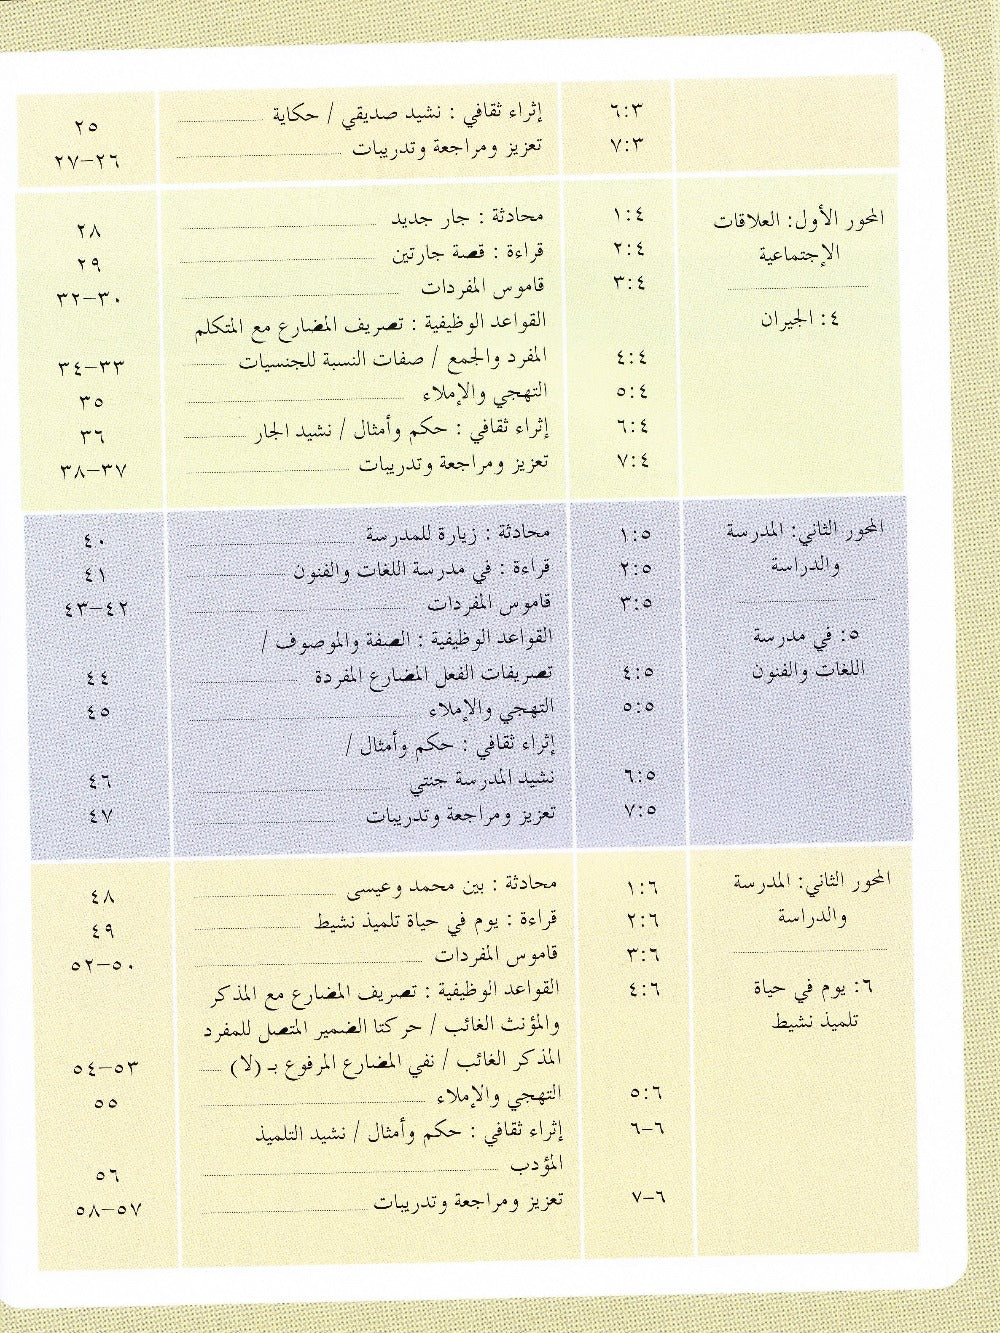 ٦:٣ إثراء ثقافي : نشيد صديقي / حكاية ٢٥
٧:٣ تعزيز ومراجعة وتدريبات ٢٦-٢٧
المحور الأول: العلاقات
الإجتماعية
٤: الجيران
١:٤ محادثة : جار جديد ٢٨
٢:٤ قراءة : قصة جارتين ٢٩
٣:٤ قاموس المفردات ٣٠-٣٢
القواعد الوظيفية : تصريف المضارع مع المتكلم
٤:٤ المفرد والجمع / صفات النسبة للجنسيات ٣٣-٣٤
٥:٤ التهجي والإملاء ٣٥
٦:٤ إثراء ثقافي : حكم وأمثال / نشيد الجار ٣٦
٧:٤ تعزيز ومراجعة وتدريبات ٣٧-٣٨
المحور الثاني: المدرسة
والدراسة
٥: في مدرسة
اللغات والفنون
١:٥ محادثة : زيارة للمدرسة ٤٠
٢:٥ قراءة : في مدرسة اللغات والفنون ٤١
٣:٥ قاموس المفردات ٤٢-٤٣
القواعد الوظيفية : الصفة والموصوف /
٤:٥ تصريفات الفعل المضارع المفردة ٤٤
٥:٥ التهجي والإملاء ٤٥
إثراء ثقافي : حكم وأمثال /
٦:٥ نشيد المدرسة جنتي ٤٦
٧:٥ تعزيز ومراجعة وتدريبات ٤٧
المحور الثاني: المدرسة
والدراسة
٦: يوم في حياة
تلميذ نشيط
١:٦ محادثة : بين محمد وعيسى ٤٨
٢:٦ قراءة : يوم في حياة تلميذ نشيط ٤٩
٣:٦ قاموس المفردات ٥٠-٥٢
٤:٦ القواعد الوظيفية : تصريف المضارع مع المذكر
والمؤنث الغائب / حركتا الضمير المتصل للمفرد
المذكر الغائب / نفي المضارع المرفوع بـ (لا) ٥٣-٥٤
٥:٦ التهجي والإملاء ٥٥
٦-٦ إثراء ثقافي : حكم وأمثال / نشيد التلميذ
المؤدب ٥٦
٦-٧ تعزيز ومراجعة وتدريبات ٥٧-٥٨